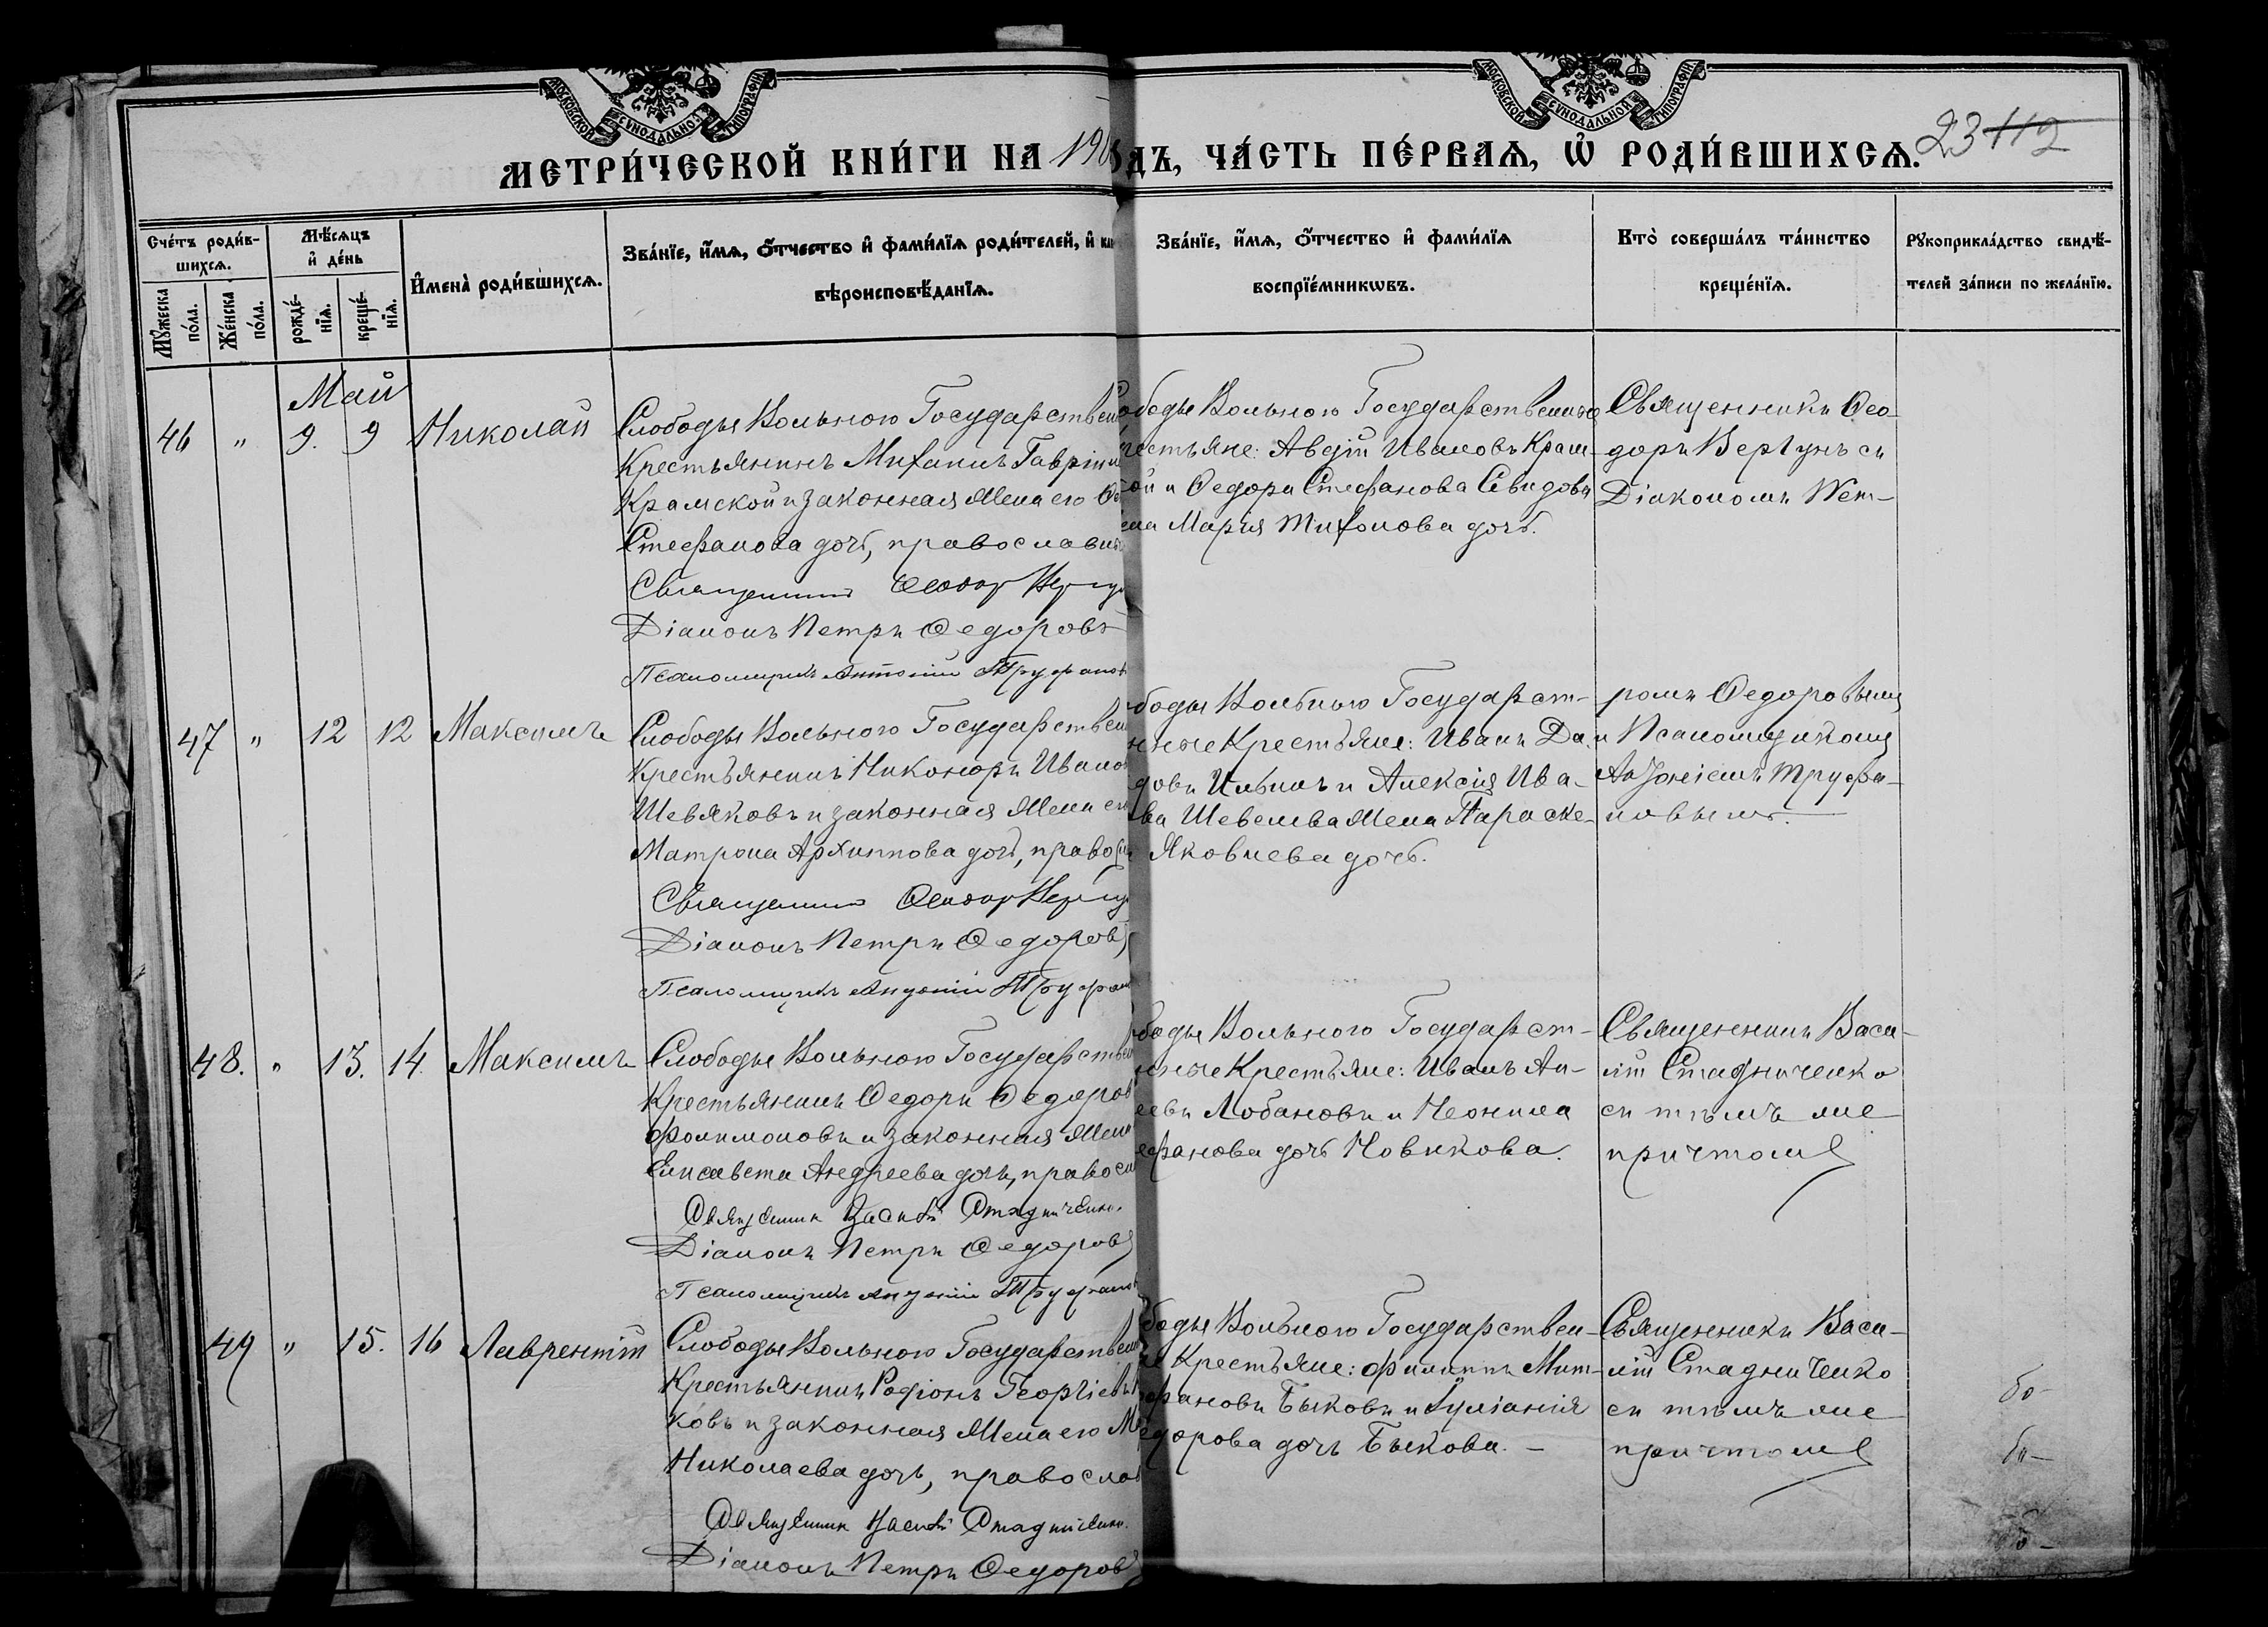 МОСКОВСКОЙ СѴНОДАЛЬНОЙ ТИПОГРАФІИ
МОСКОВСКОЙ СѴНОДАЛЬНОЙ ТИПОГРАФІИ
МЕТРИ́ЧЕСКОЙ КНИ́ГИ НА 190
дъ, ЧА́СТЬ ПЕ́РВАѦ, Ѡ҆ РОДИ́ВШИХСѦ.
23 112
Сче́тъ роди́в-
шихсѧ.
Мꙋ́жеска
по́ла.
Же́нска
по́ла.
Мѣ́сѧцъ
и҆ де́нь
рожде́-
нїѧ.
креще́-
нїѧ.
И҆мена̀ роди́вшихсѧ.
Зва́нїе, и҆́мѧ, ѻ҆́тчество и҆ фами́лїѧ роди́телей, и҆
вѣроисповѣ́данїѧ.
Зва́нїе, и҆́мѧ, ѻ҆́тчество и҆ фами́лїѧ
воспрїе́мникѡвъ.
Кто̀ соверша́лъ та́инство
креще́нїѧ.
Рꙋкоприкла́дство свидѣ́-
телей за́писи по жела́нїю.
Май
46 " 9. 9 Николай
Слободы Вольного Государствен
Крестьянинъ Михаилъ Гаврiил
Крамской и законная жена его Ѳе
Стефанова дочь, православны
Священникъ Ѳеодоръ Вергу
Дiаконъ Петръ Ѳедоровъ
Псаломщикъ Антонiй Труфанов
ободы Вольного Государственные
рестьяне: Авдiй Ивановъ Крам-
ой и Ѳедора Стефанова Свидова
ена Марiя Тихонова дочь.
Священникъ Ѳео-
доръ Вергунъ съ
Дiакономъ Пет-
47 " 12 12 Максимъ
Слободы Вольного Государствен
Крестьянинъ Никоноръ Ивано
Шевяковъ и законная жена его
Матрона Архиппова дочь, правосл
Священникъ Ѳеодоръ Вергу
Дiаконъ Петръ Ѳедоров
Псаломщикъ Антонiй Труфан
ободы Вольного Государст-
нные Крестьяне: Иванъ Да
довъ Ильинъ и Алексiя Ива-
ва Шевелева жена Параске-
Яковлева дочь.
ромъ Ѳедоровымъ
и Псаломщикомъ
Антонiемъ Труфа-
новымъ.
48. " 13. 14. Максимъ
Слободы Вольного Государствен
Крестьянинъ Ѳедоръ Ѳедоров
Филимоновъ и законная жена
Елисавета Андреева дочь, правосл
Священникъ Василiй Стадниченко.
Дiаконъ Петръ Ѳедоровъ
Псаломщикъ Антонiй Труфанов
боды Вольного Государст-
нные Крестьяне: Иванъ Ан-
еевъ Лобановъ и Неонила
ефанова дочь Новикова.
Священникъ Васи-
лiй Стадниченко
съ тѣмъ же
причтомъ
49 " 15. 16 Лаврентiй
Слободы Вольного Государствен
Крестьянинъ Родiонъ Георгiевъ
ковъ и законная жена его М
Николаева дочь, православ
Священникъ Василiй Стадниченко.
Дiаконъ Петръ Ѳедоровъ
боды Вольного Государствен-
е Крестьяне: Филиппъ Мит-
фановъ Быковъ и Iулiанiя
едорова дочь Быкова. –
Священникъ Васи-
лiй Стадниченко
съ тѣмъ же
причтомъ